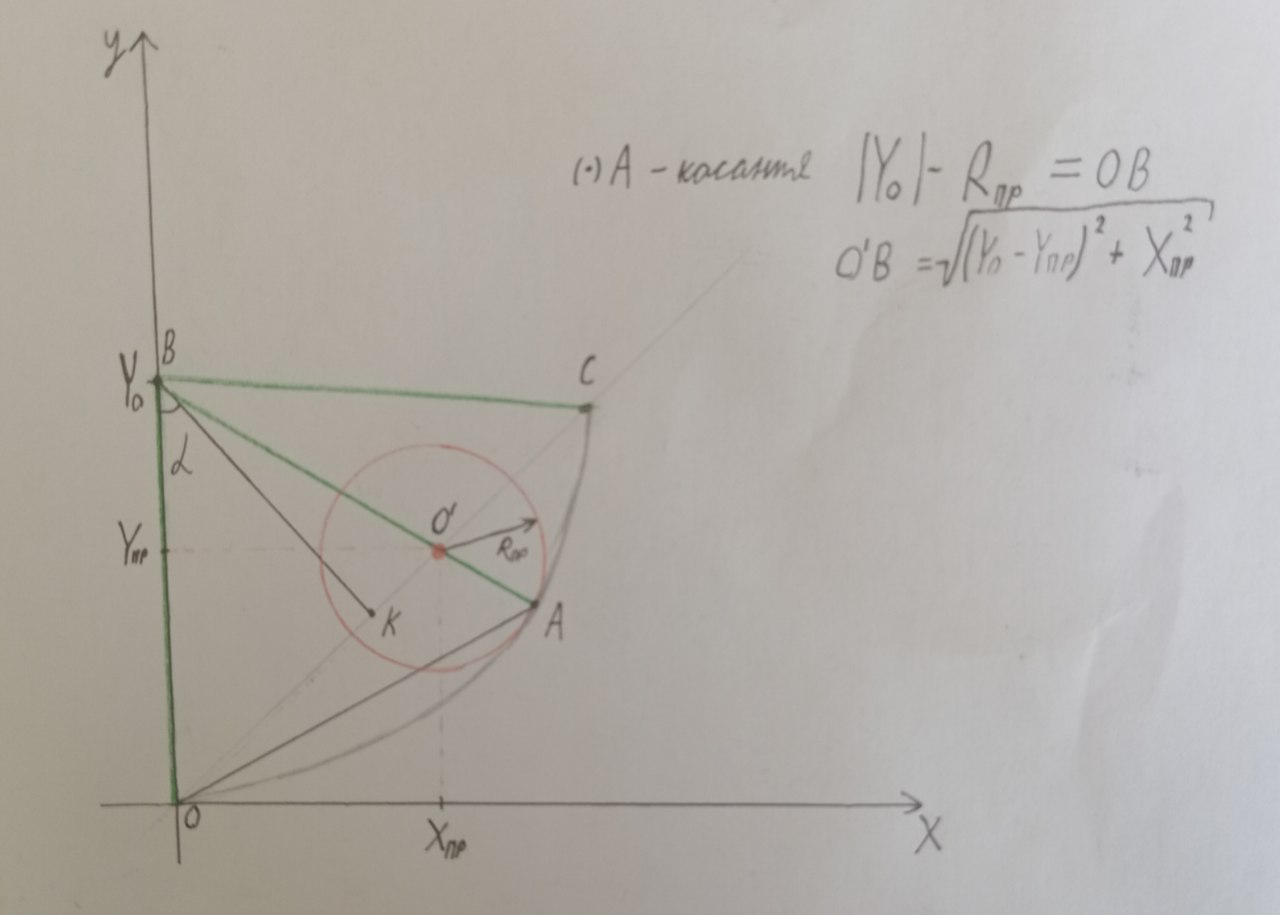 y
(·) A - касание |Y₀| - Rпр = OB
O'B = √(Y₀ - Yпр)² + Xпр²
B
Y₀
C
α
O'
Yпр
Rпр
K
A
O
Xпр
X